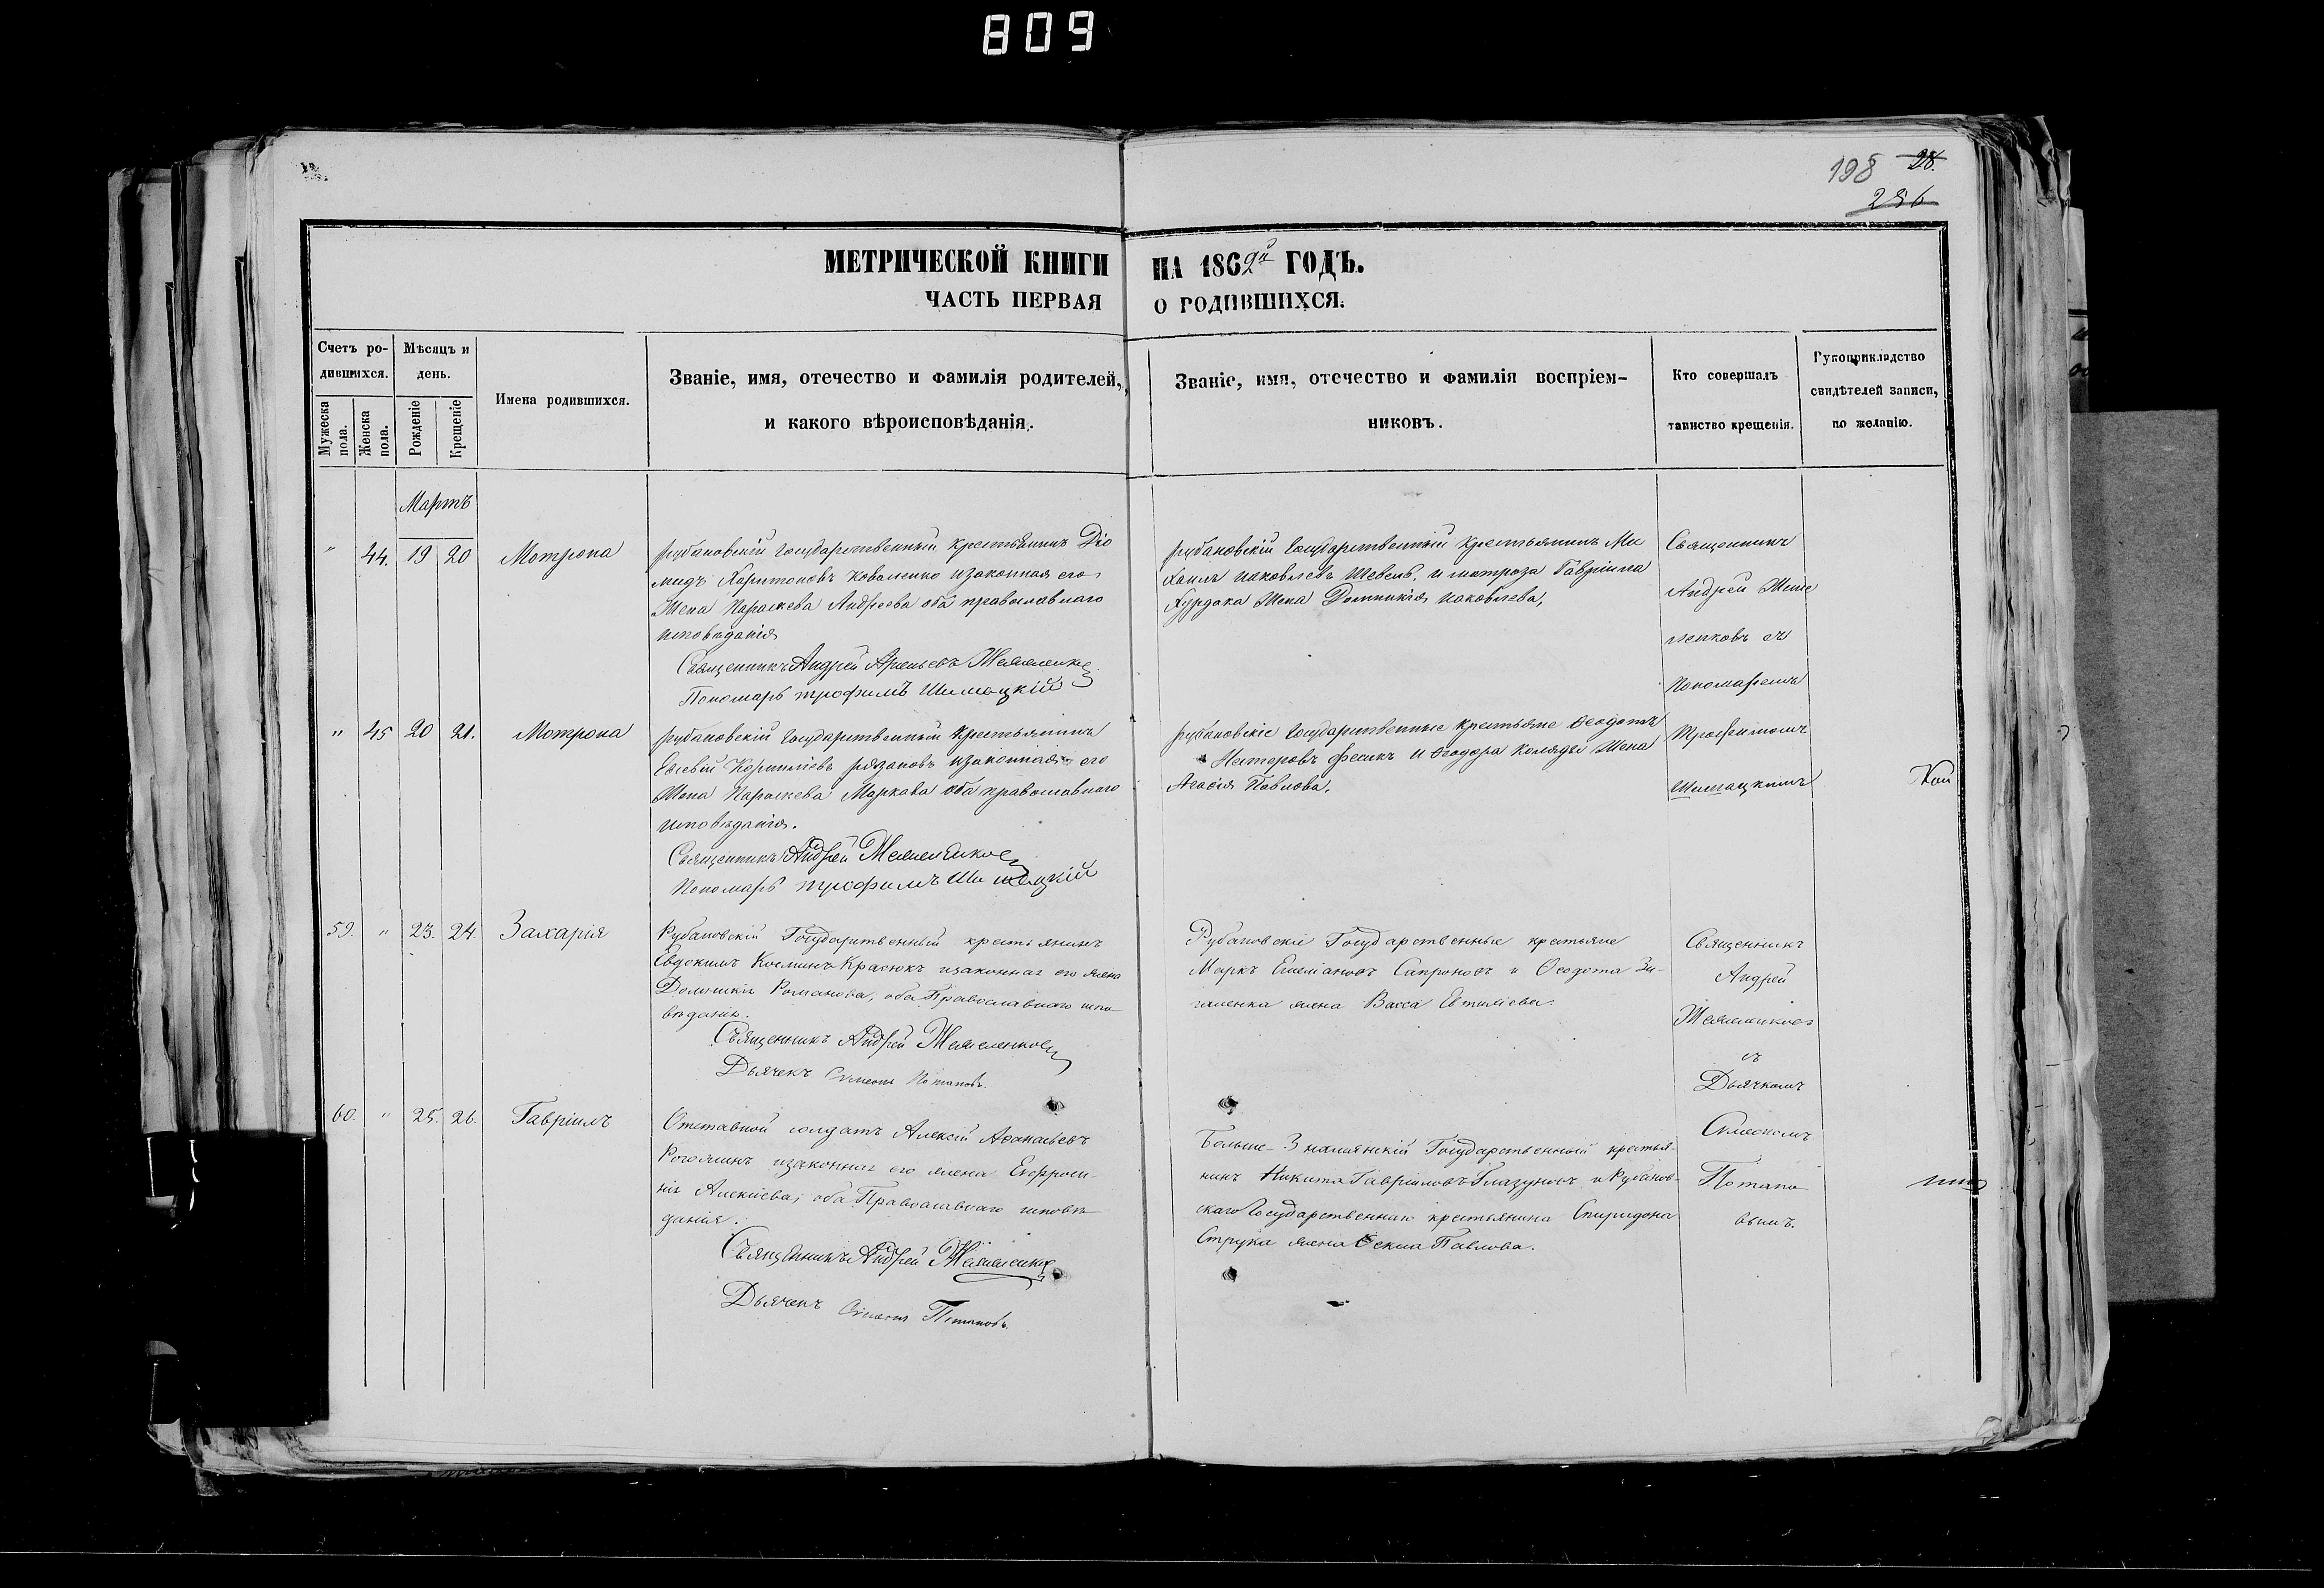 809
198 28.
286
МЕТРИЧЕСКОЙ КНИГИ НА 1862й ГОДЪ.
ЧАСТЬ ПЕРВАЯ О РОДИВШИХСЯ.
Счетъ родившихся.
Мужеска пола.
Женска пола.
Мѣсяцъ и день.
Рожденіе
Крещеніе
Имена родившихся.
Званіе, имя, отечество и фамилія родителей,
и какого вѣроисповѣданія.
Званіе, имя, отечество и фамилія воспріем-
никовъ.
Кто совершалъ
таинство крещенія.
Рукоприкладство
свидѣтелей записи,
по желанію.
Мартъ
" 44. 19 20 Мотрона
рубановскій государственный крестьянинъ Діо
мидъ Харитоновъ Коваленко изаконная его
Жена Параскева Андреева оба православнаго
исповѣданія
Священникъ Андрей Арсеньевъ
Пономарь трофимъ Шимацкій
рубановскій государственный крестьянинъ Ми
хаилъ иаковлевъ Шевель, и матроза Гавріила
Курдака Жена Домникія иаковлева,
Священникъ
Андрей
съ
Пономаремъ
Трофимомъ
Шимацкимъ
" 45 20 21. Мотрона
рубановскій государственный крестьянинъ
Евсевій Корниліевъ рязановъ изаконная его
Жена Параскева Маркова оба православнаго
исповѣданія.
Священникъ Андрей
Пономарь трофимъ Шимацкій
рубановскіе государственные крестьяне Ѳеодотъ
Нестеровъ фесикъ и Ѳеодора Коляды Жена
Агафія Павлова.
59. " 23. 24. Захарія
Рубановскій Государственный крестьянинъ
Евдокимъ Косминъ Красюкъ изаконная его жена
Домникія Романова, оба Православнаго испо-
вѣданія.
Священникъ Андрей
Дьячекъ Симеонъ Потаповъ.
Рубановскіе Государственные крестьяне
Маркъ Емеліановъ Сапроновъ и Ѳеодота Зи-
галенка жена Васса Евтиліева.
Священникъ
Андрей
съ
Дьячкомъ
Симеономъ
Потапо
вымъ.
60. " 25. 26. Гавріилъ
Отставной солдатъ Алексій Аѳанасьевъ
Рогожинъ изаконная его жена Евфроси-
нія Алексіева, оба Православнаго исповѣ-
данія.
Священникъ Андрей
Дьячекъ Симеонъ Потаповъ.
Больше-Знамянскій Государственный крестья-
нинъ Никита Гавріиловъ Глазуновъ и Рубанов-
скаго Государственнаго крестьянина Спиридона
Струка жена Ѳекла Павлова.